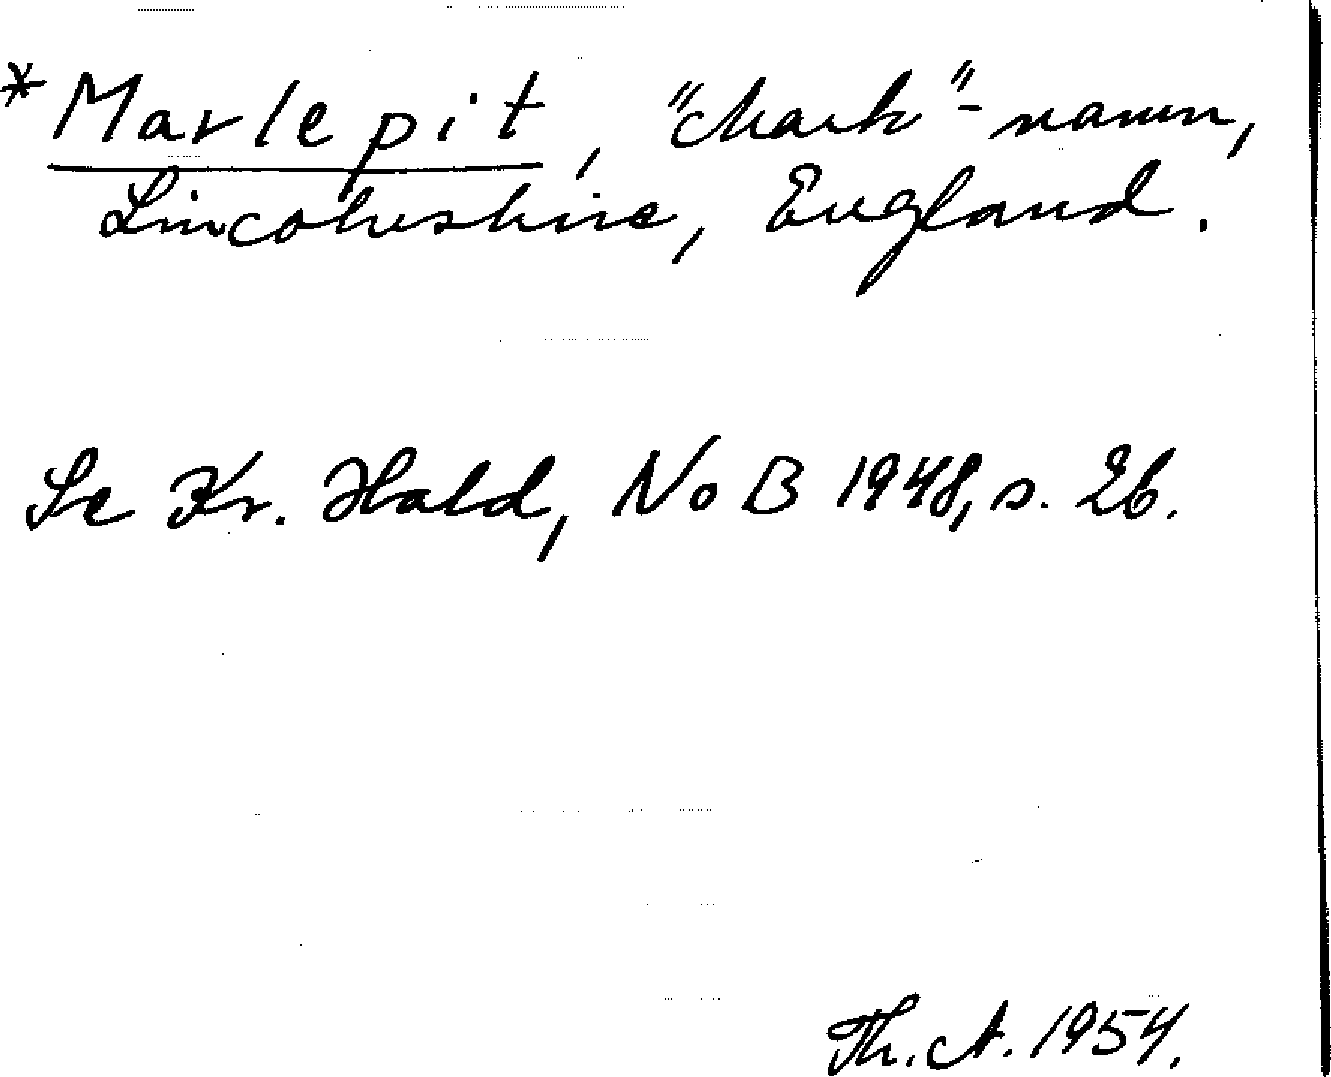 * Marlepit, "Mark"-namn,
Lincolnshire, England.
Se Kr. Hald, NoB 1948, s. 26.
Th. A. 1954.